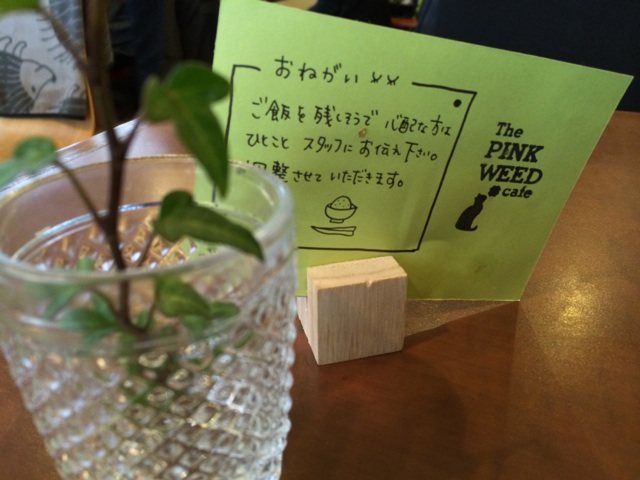 おねがい
ご飯を残しそうで 心配な方は
ひとこと スタッフに お伝え下さい。
調整させていただきます。
The
PINK
WEED
cafe